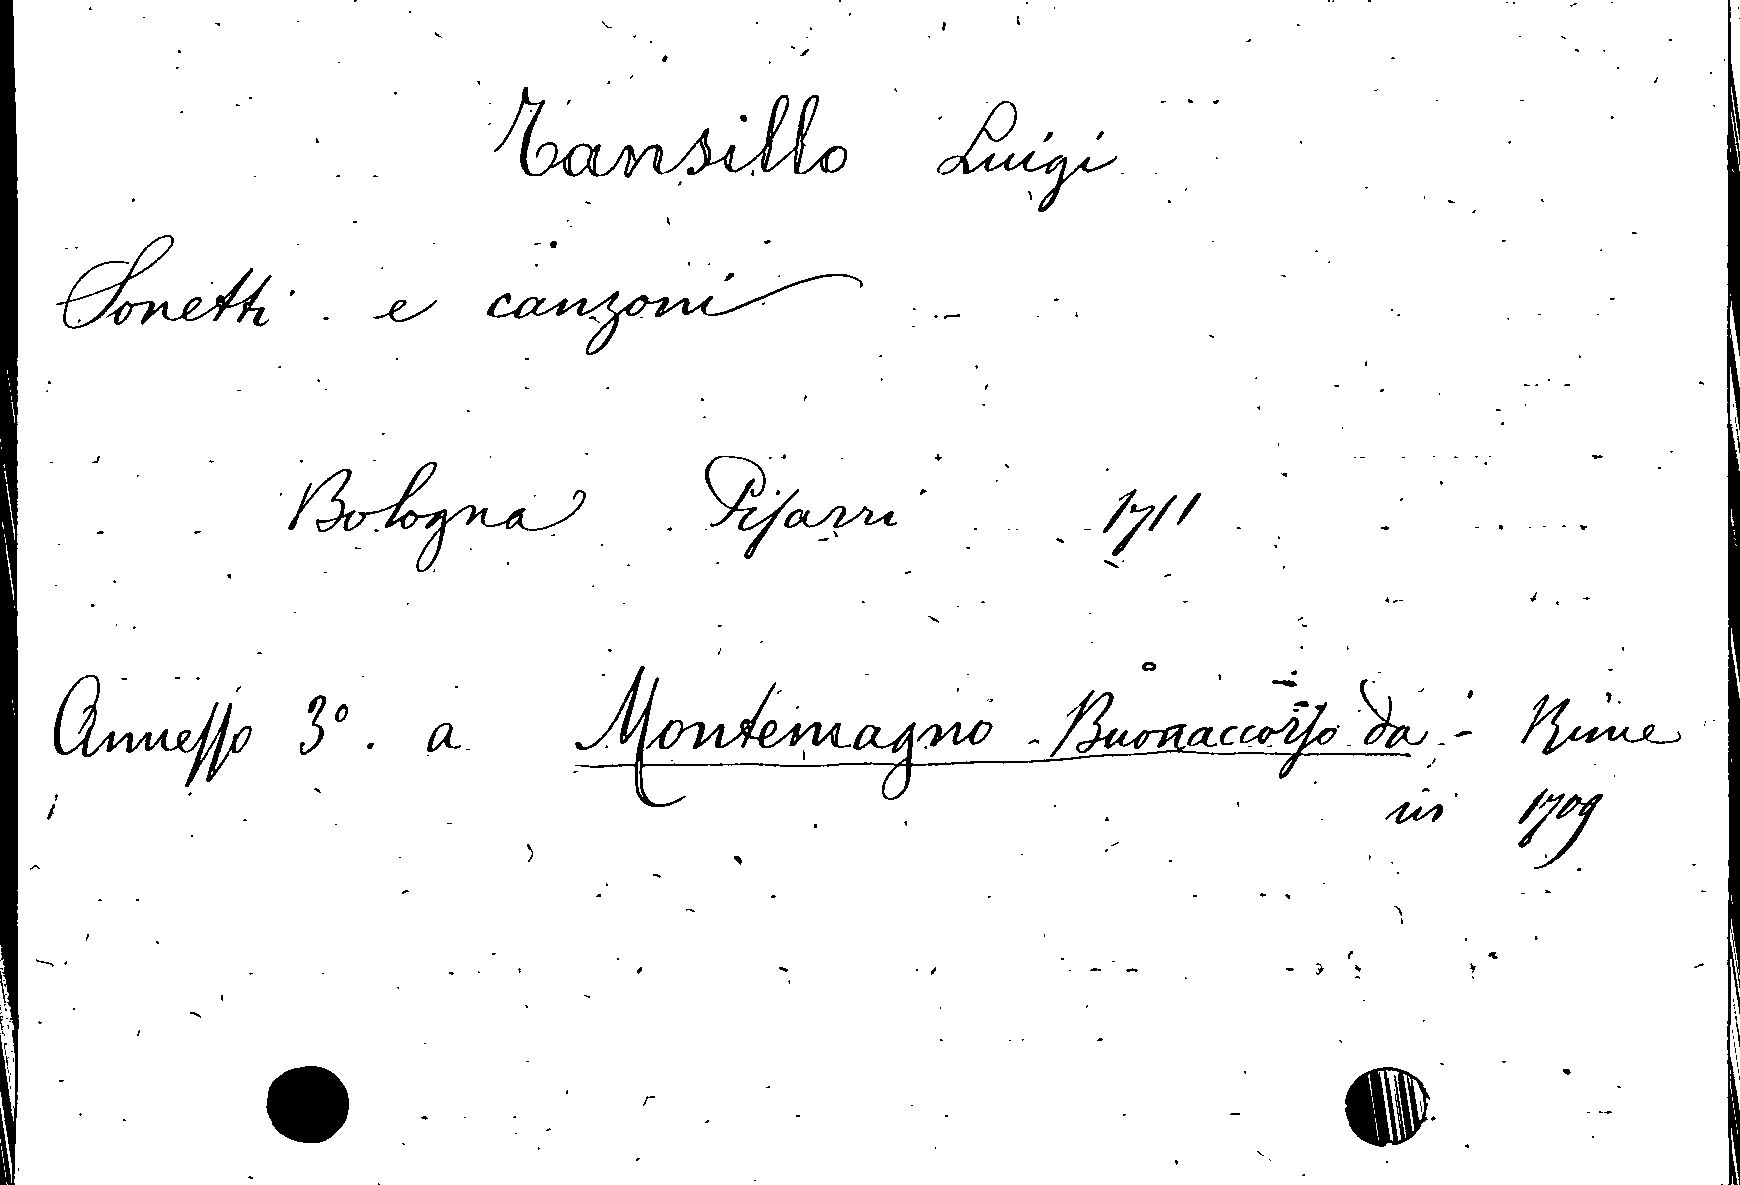 Tansillo Luigi
Sonetti e canzoni
Bologna Pisarri 1711
Annesso 3º. a Montemagno - Buonaccorso da - Rime
in 1709